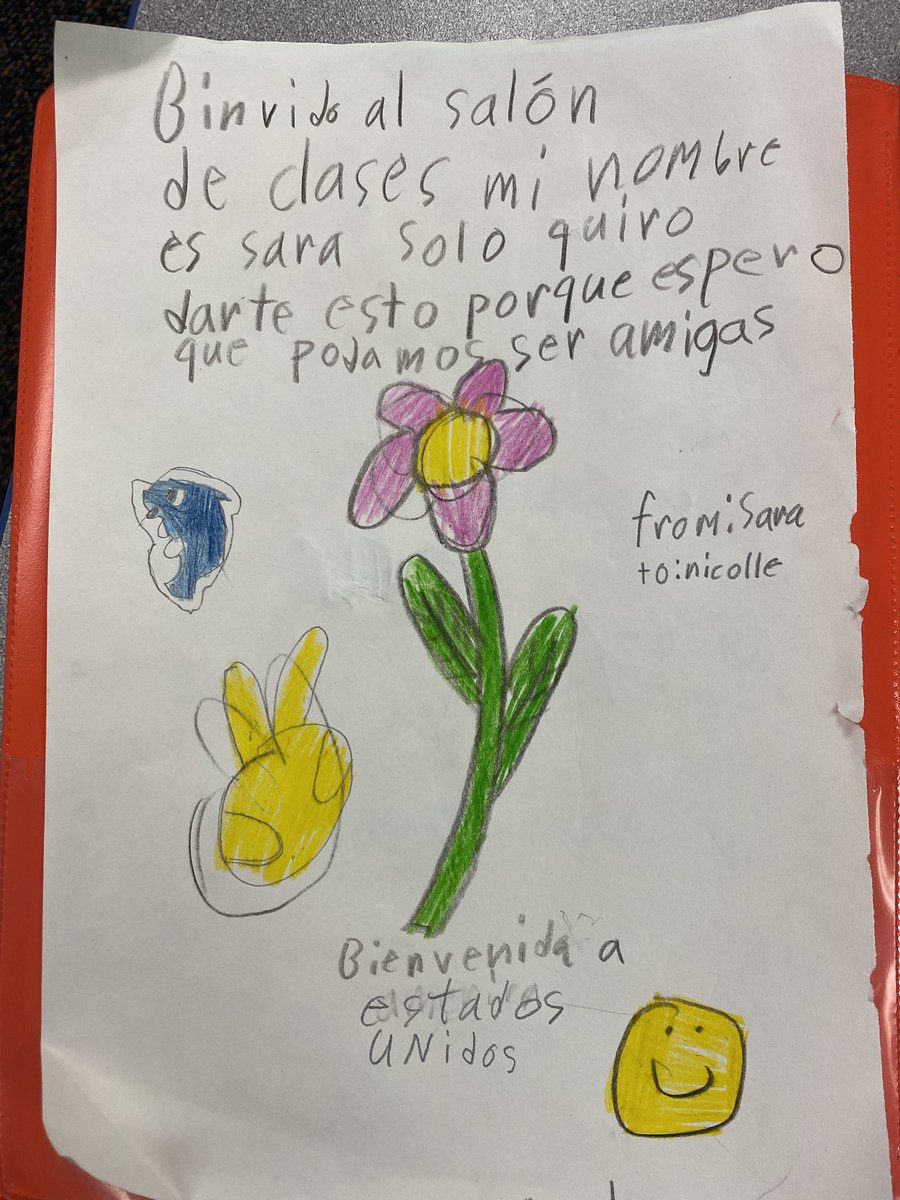 Binvido al salón
de clases mi nombre
es sara solo quiro
darte esto porque espero
que podamos ser amigas
from: Sara
to: nicolle
Bienvenida a
estados
UNidos